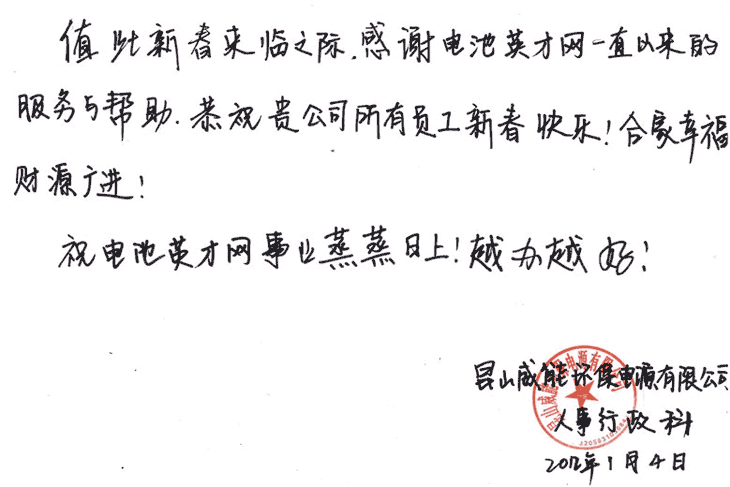 值此新春来临之际,感谢电池英才网一直以来的
服务与帮助.恭祝贵公司所有员工新春快乐!合家幸福
财源广进!
祝电池英才网事业蒸蒸日上!越办越好!
昆山威能环保电源有限公司
人事行政科
2012年1月4日